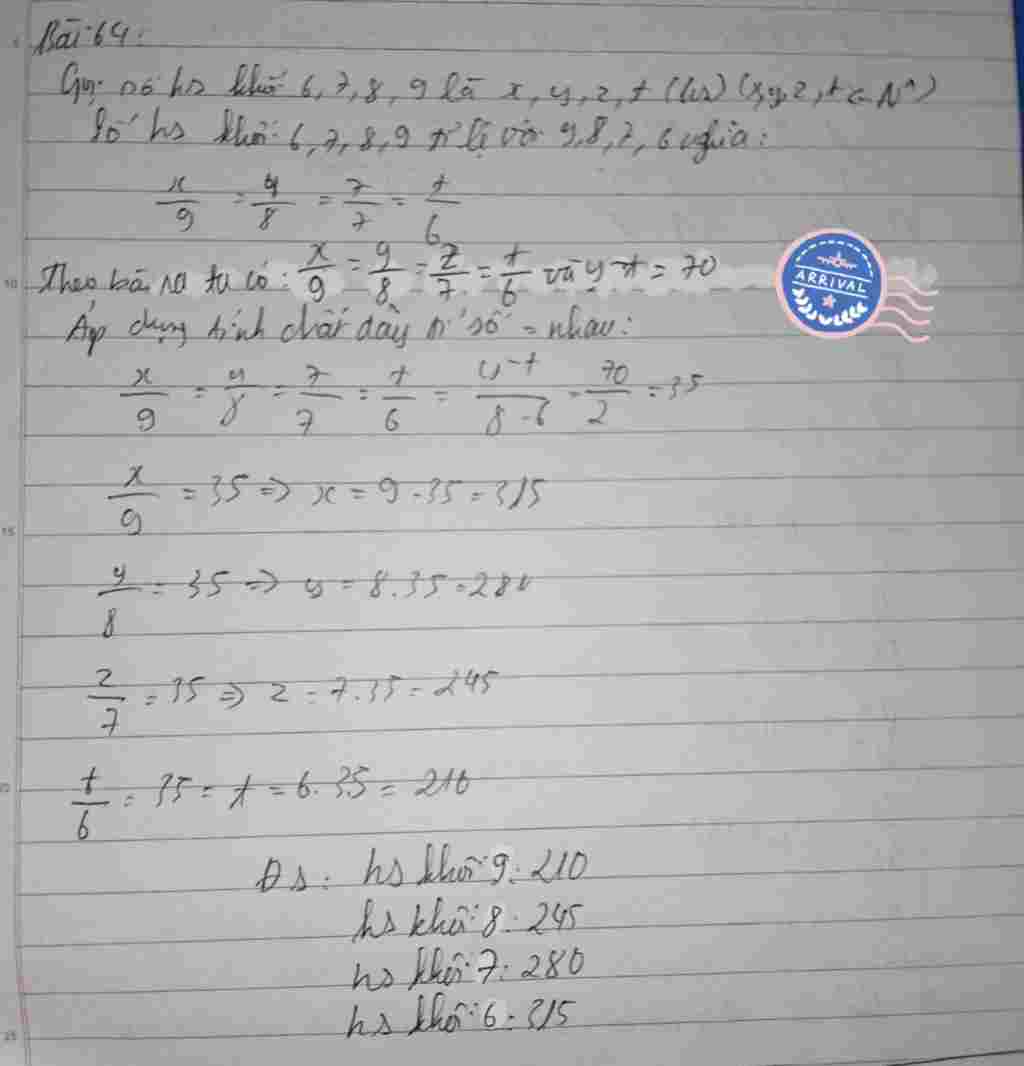 Bài 64:
Gọi số hs khối 6, 7, 8, 9 là x, y, z, t (hs) (x, y, z, t ∈ N*)
Số hs khối 6, 7, 8, 9 tỉ lệ với 9, 8, 7, 6 nghĩa:
x/9 = y/8 = z/7 = t/6
Theo bài ra ta có: x/9 = y/8 = z/7 = t/6 và y - t = 70
ARRIVAL
Áp dụng tính chất dãy tỉ số = nhau:
x/9 = y/8 = z/7 = t/6 = y-t/8-6 = 70/2 = 35
x/9 = 35 => x = 9.35 = 315
y/8 = 35 => y = 8.35 = 280
z/7 = 35 => z = 7.35 = 245
t/6 = 35 = t = 6.35 = 210
Đs: hs khối 9: 210
hs khối 8: 245
hs khối 7: 280
hs khối 6: 315
10
15
20
25